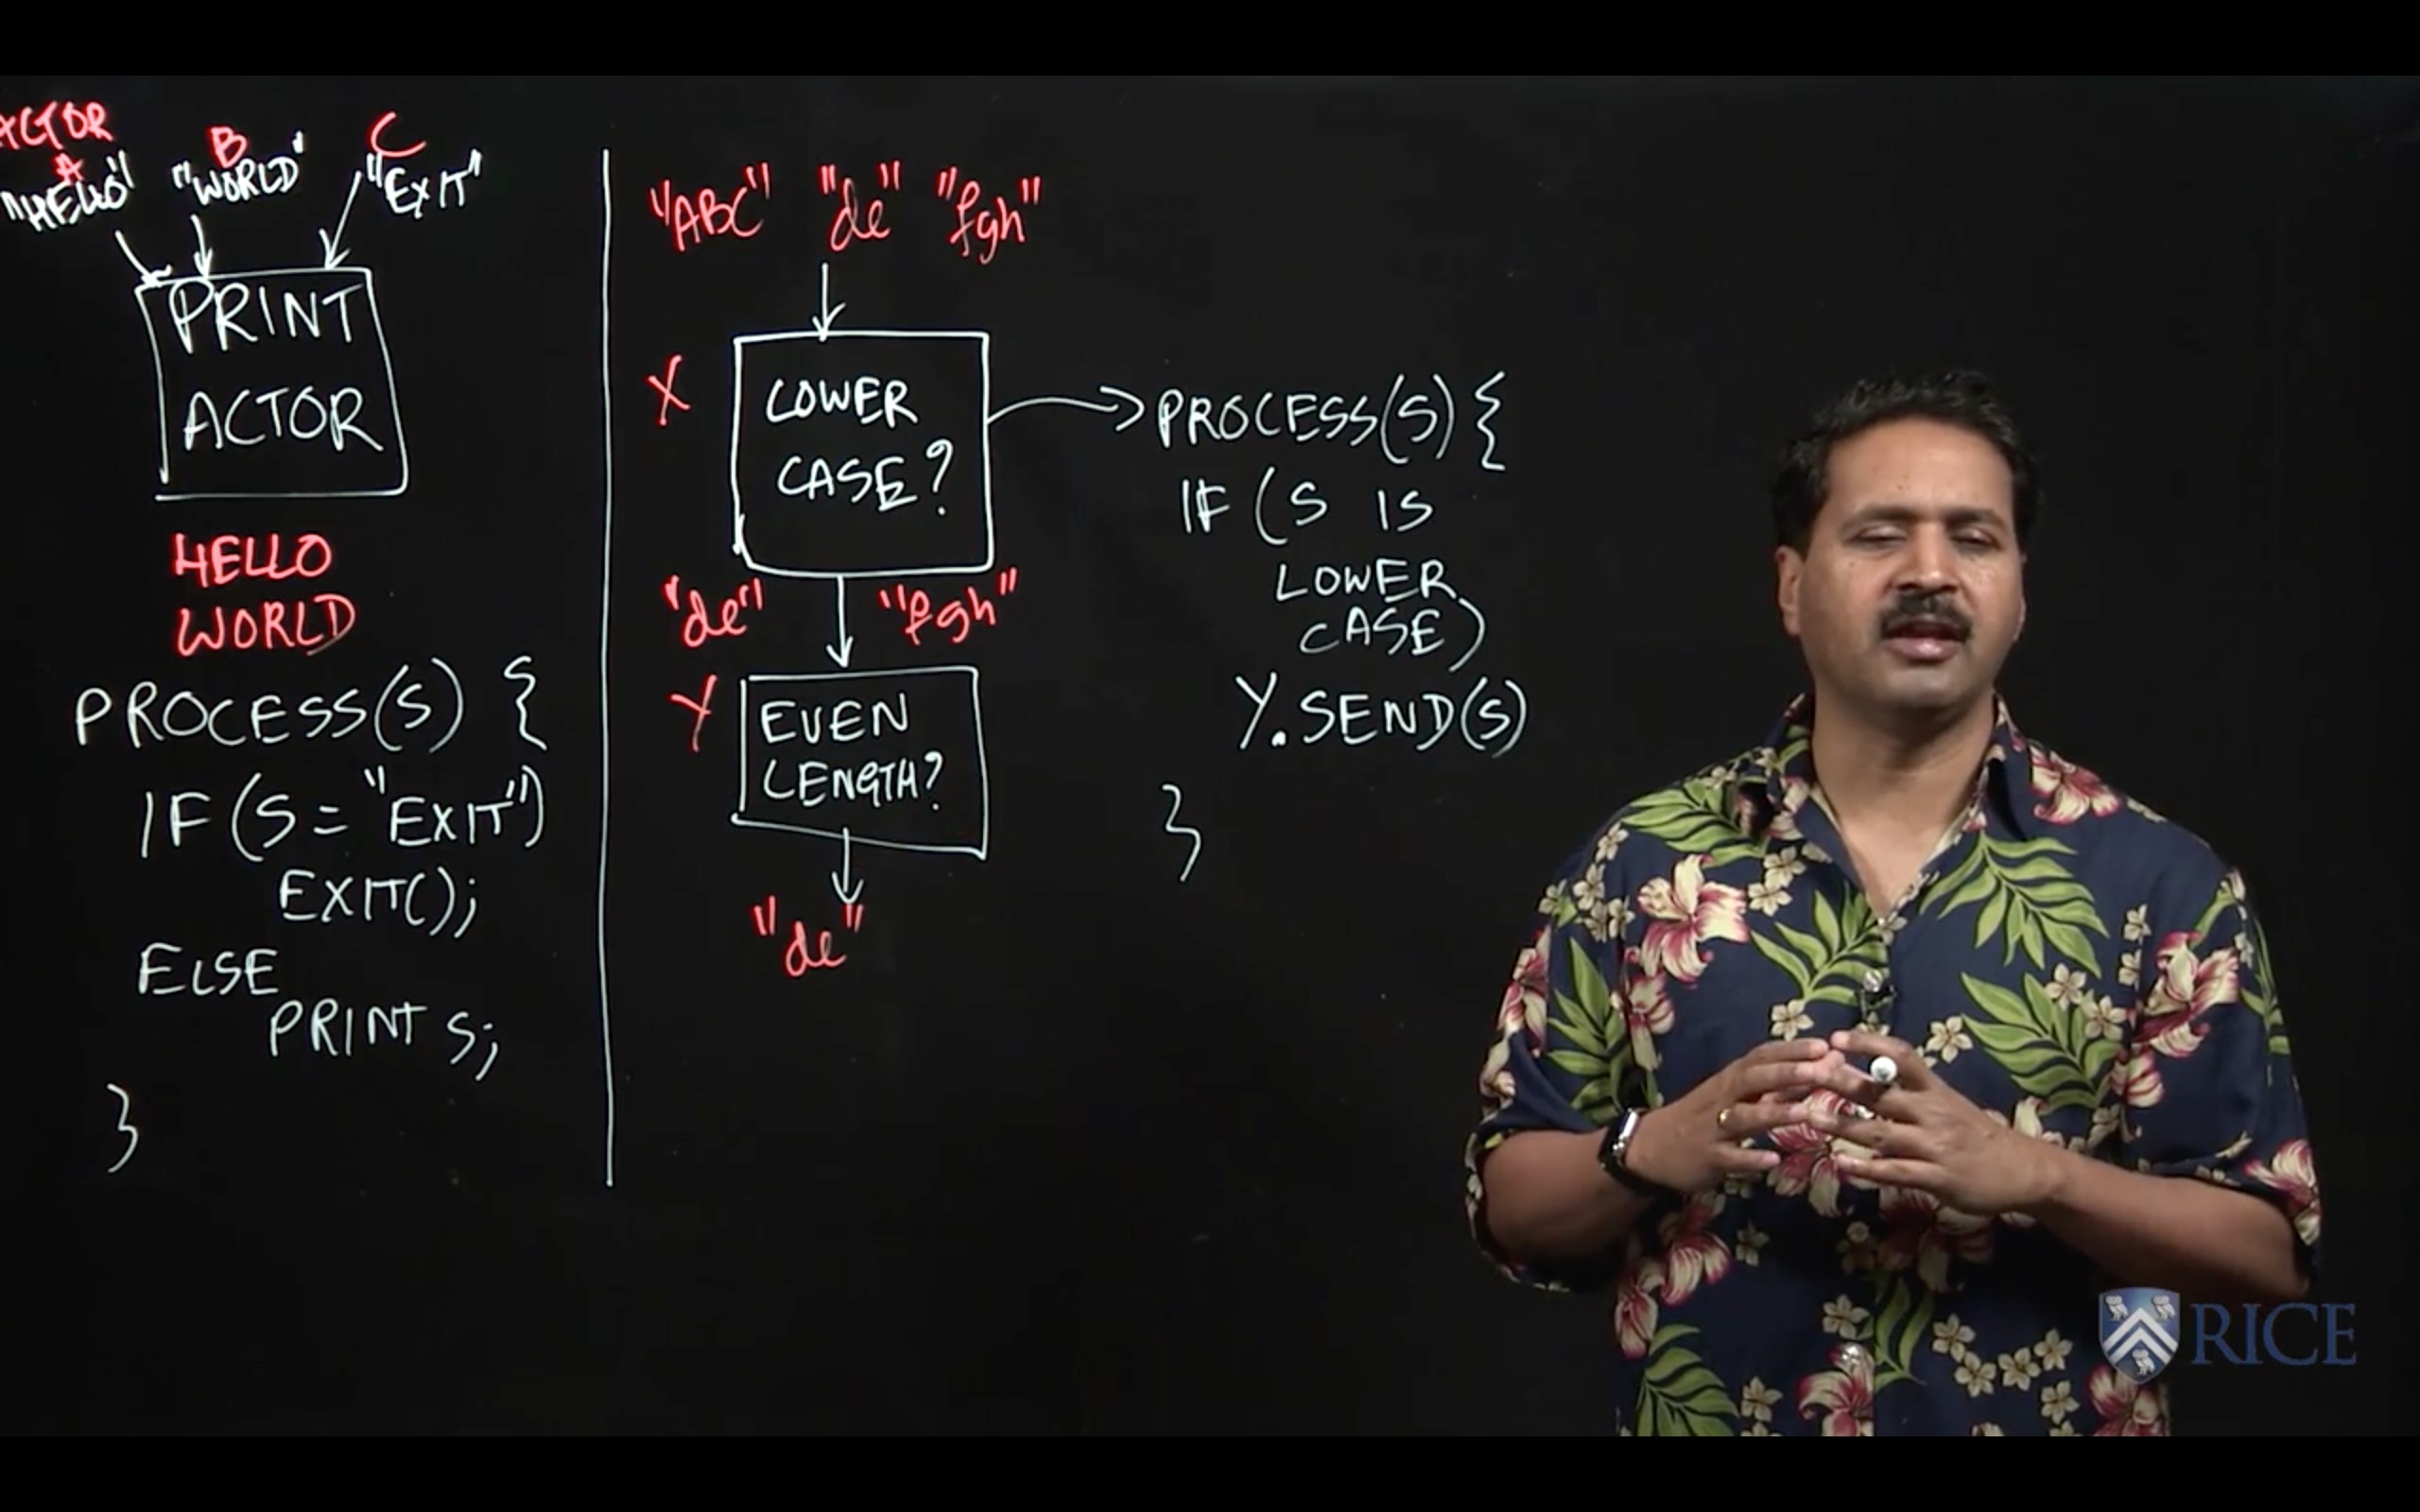 ACTOR
A
"HELLO"
B
"WORLD"
C
"EXIT"
PRINT
ACTOR
HELLO
WORLD
PROCESS(S) {
IF (S = "EXIT")
EXIT();
ELSE
PRINT S;
}
"ABC" "de" "fgh"
X
LOWER
CASE?
"de" "fgh"
Y
EVEN
LENGTH?
"de"
PROCESS(S) {
IF (S IS
LOWER
CASE)
Y.SEND(S)
}
RICE